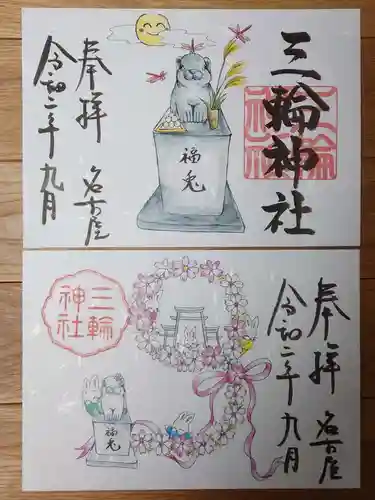 三輪神社
三輪
神社
福兎
奉拝 名古屋
令和二年九月
奉拝 名古屋
令和二年九月
三輪
神社
福兎